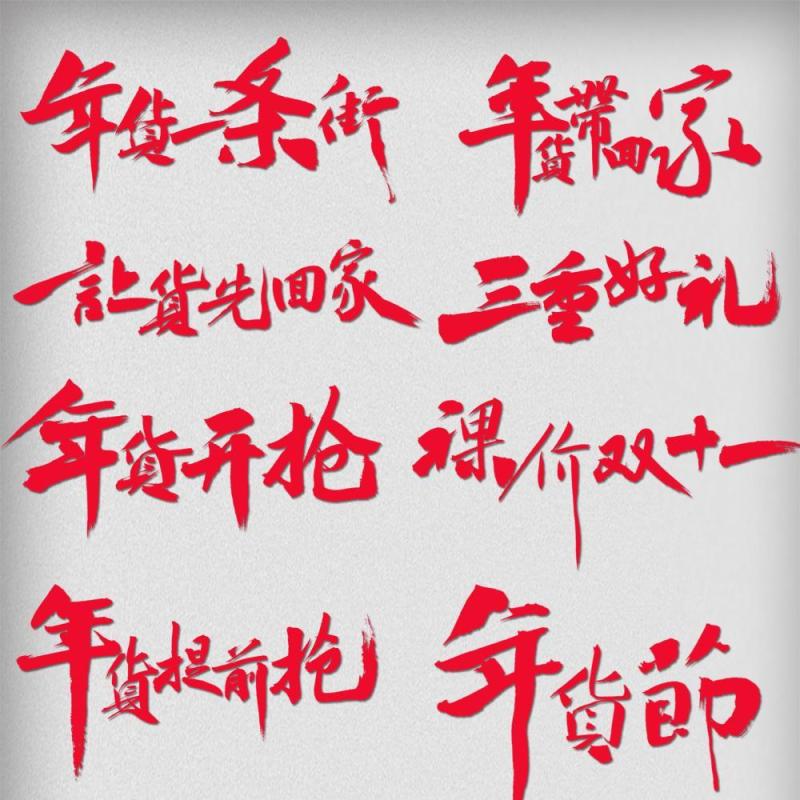 年货一条街
年货帶回家
让貨先回家
三重好礼
年货开抢
裸价双十一
年貨提前抢
年貨節